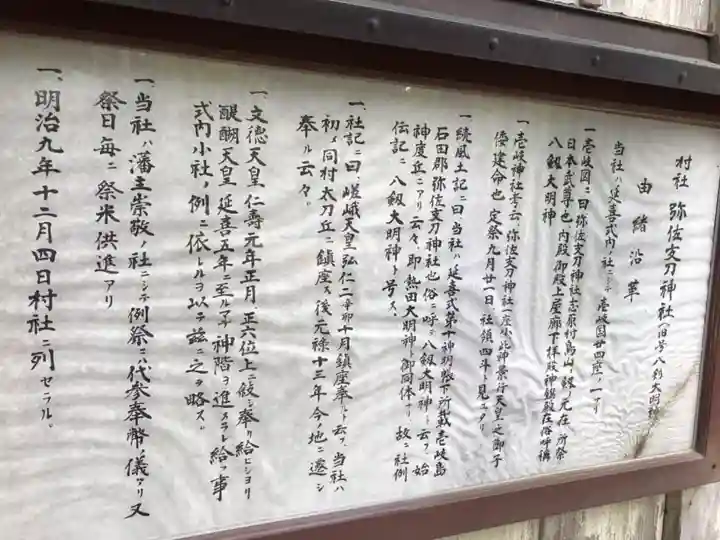 村社 弥佐支刀神社(旧号八剱大明神)
由緒沿革
当社ハ延喜式内ノ社ニシテ壱岐国廿四座ノ一ナリ
一、壱岐国ニ曰弥佐支刀神社志原村鳥山ノ鯉ノ元在ノ所祭
日本武尊也内殿御殿上屋廊下拝殿神鏡殿在俗呼
八剱大明神
一、壱岐神社考云弥佐支刀神社一座小此神景行天皇之御子
倭建命也 定祭九月廿一日、社領四斗ト見エタリ
一、続風土記ニ曰当社ハ延喜式第十神明帳下所載壱岐島
石田郡弥佐支刀神社也俗ニ呼テ八剱大明神ト云フ始
神度丘ニアリ云々、即熱田大明神ト御同体ナリ故ニ社例
伝記ニ八剱大明神ト号ス、
一、社記ニ曰、嵯峨天皇弘仁二辛卯十月鎮座奉ルト云フ、当社ハ
初メ同村太刀丘ニ鎮座ス後元禄十三年今ノ地ニ遷シ
奉ル云々、
一、文徳天皇仁寿元年正月、正六位上ニ叙シ奉リ給ヒシヨリ
醍醐天皇延喜五年ニ至ルマデ神階ヲ進メラレ給フ事
式内小社ノ例ニ依トルヲ以テ茲ニ之ヲ略ス、
一、当社ハ藩主崇敬ノ社ニシテ例祭ニ代参奉幣ノ儀アリ又
祭日毎ニ祭米供進アリ
一、明治九年十二月四日村社ニ列セラル、